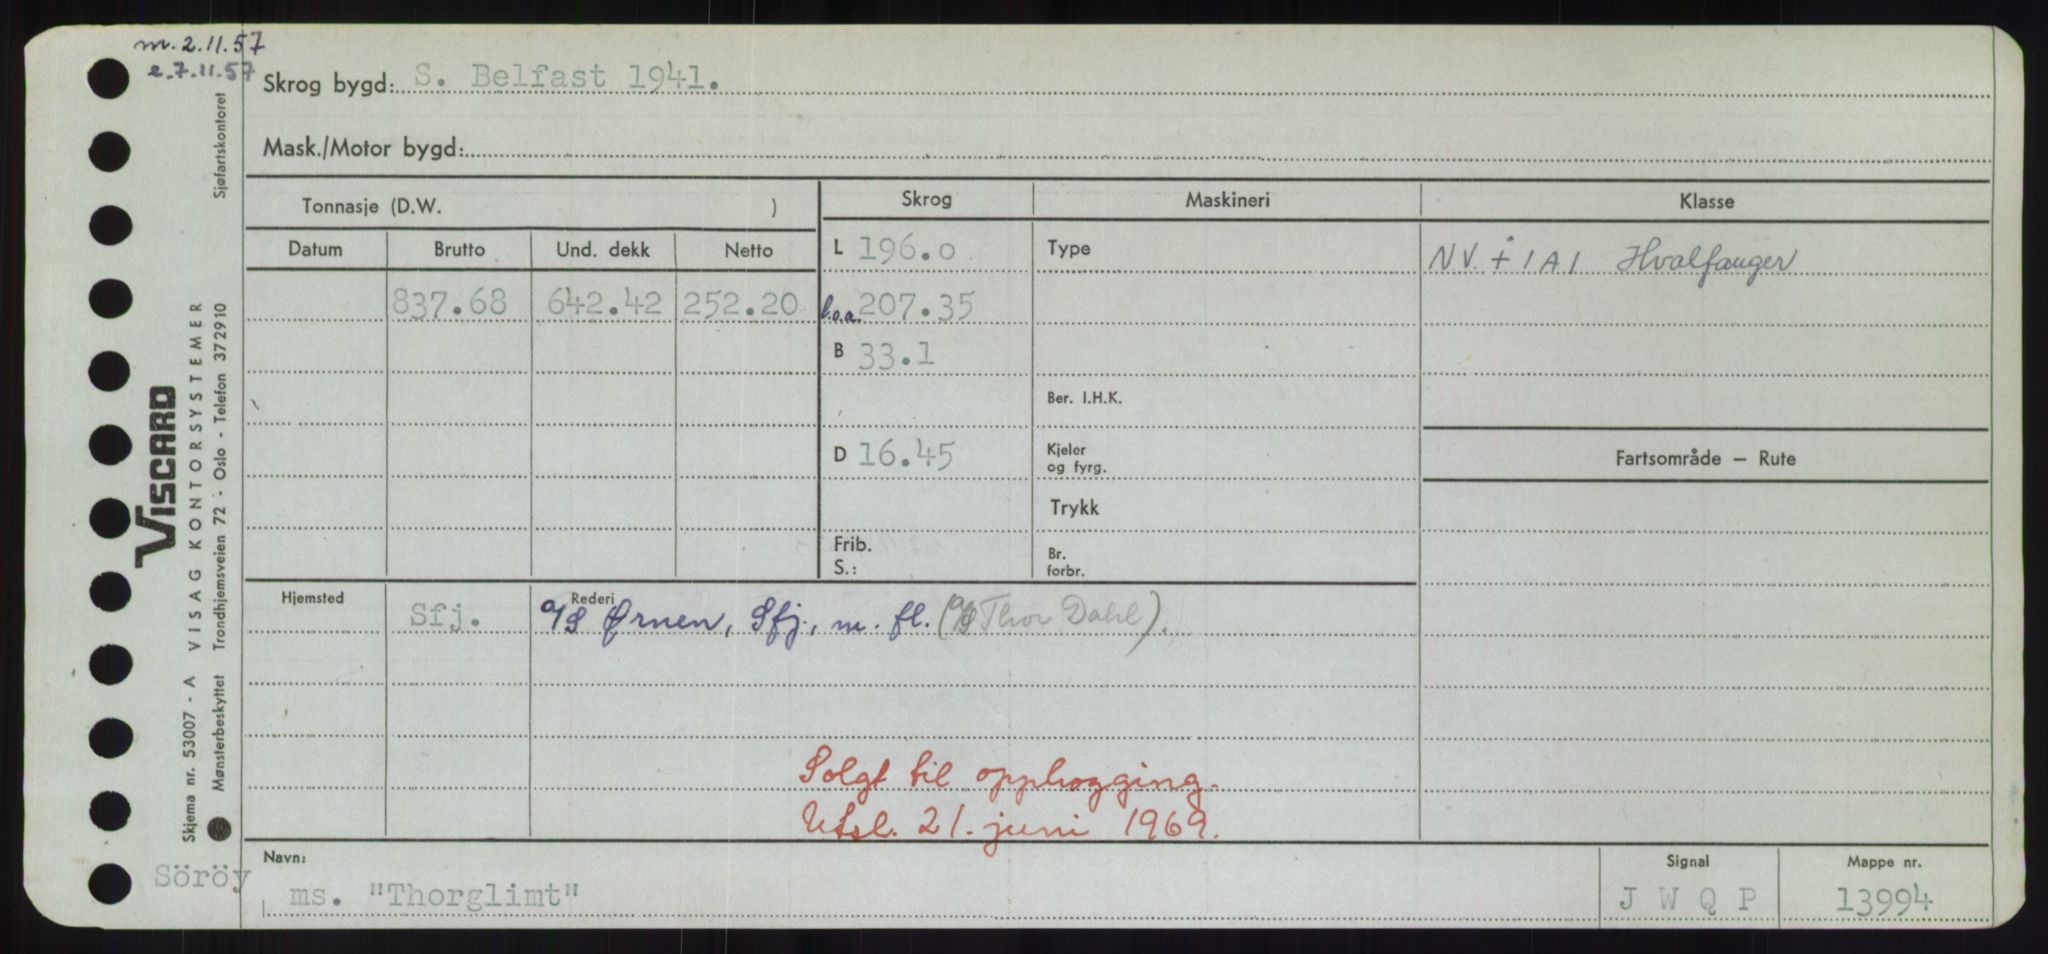 m. 2.11.57
e. 7.11.57
Skrog bygd: S. Belfast 1941.
Mask./Motor bygd:
Tonnasje (D.W. )
Skrog Maskineri Klasse
Datum Brutto Und. dekk Netto
L 196.0 Type NV. + 1A1 Hvalfanger
837.68 642.42 252.20 l.o.a. 207.35
B 33.1
Ber. I.H.K.
D 16.45 Kjeler
og fyrg.
Fartsområde — Rute
Trykk
Frib.
S.:
Br.
forbr.
Hjemsted Rederi
Sfj. A/S Ørnen, Sfj., m. fl. (A/S Thor Dahl).
Solgt til opphogging.
Utsl. 21. juni 1969.
Navn: Signal Mappe nr.
Söröy
ms. "Thorglimt" J W Q P 13994
VISCARD
Skjema nr. 53007 - A VISAG KONTORSYSTEMER
Mønsterbeskyttet Trondhjemsveien 72 - Oslo - Telefon 372910 Sjøfartskontoret